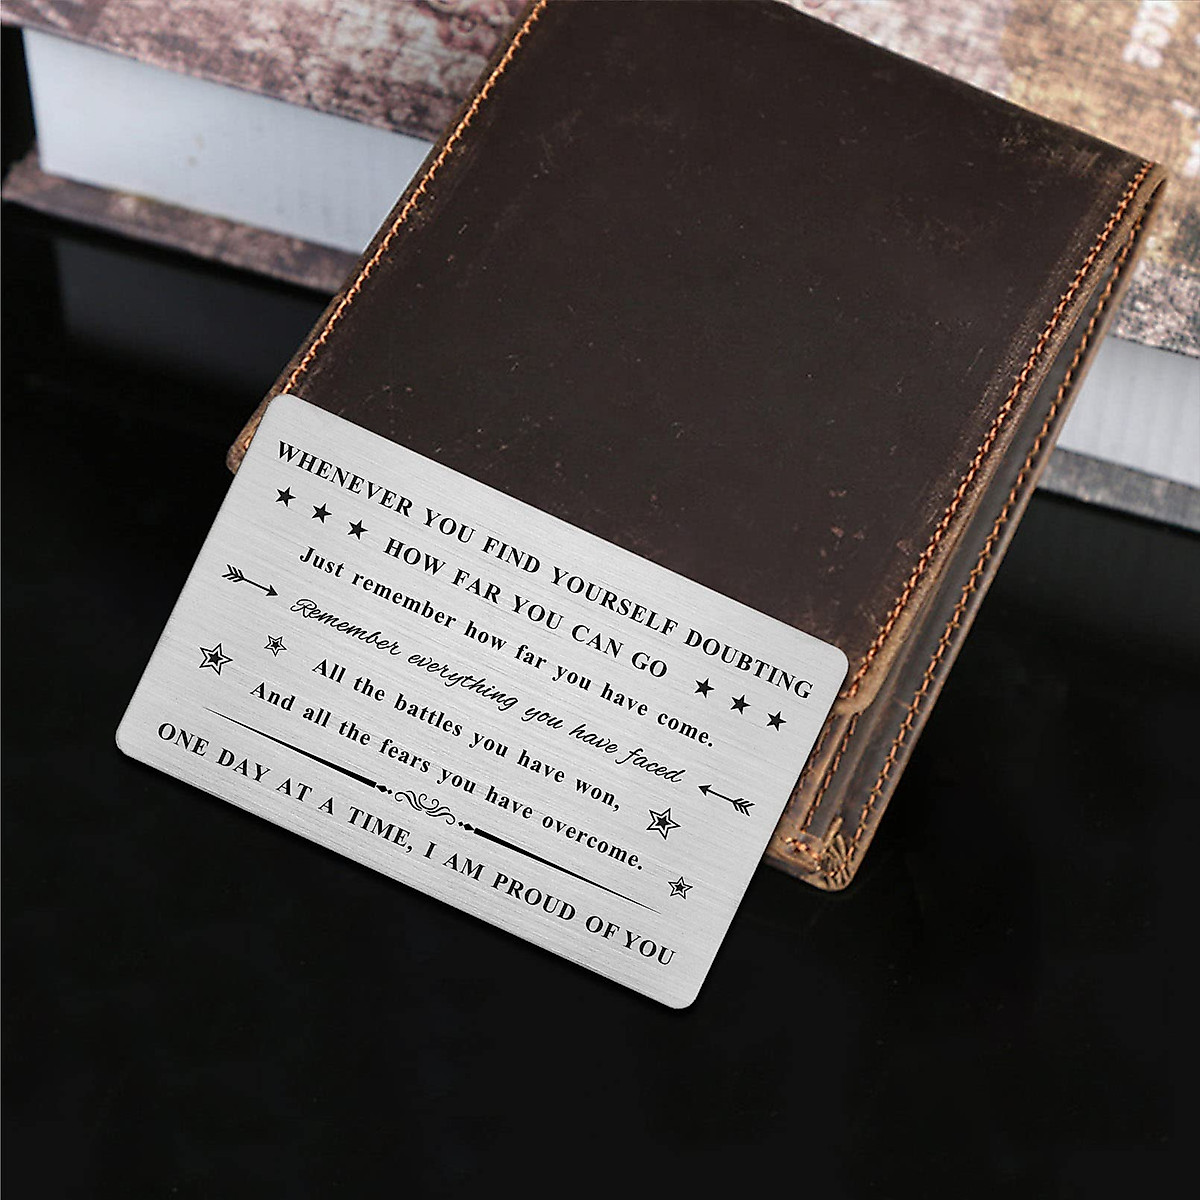 WHENEVER YOU FIND YOURSELF DOUBTING
HOW FAR YOU CAN GO
Just remember how far you have come.
Remember everything you have faced
All the battles you have won,
And all the fears you have overcome.
ONE DAY AT A TIME, I AM PROUD OF YOU